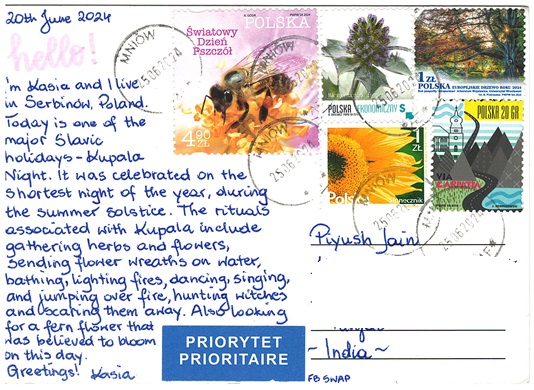 20th June 2024
hello!
I'm Kasia and I live
in Serbinów, Poland.
Today is one of the
major Slavic
holidays - Kupala
Night. It was celebrated on the
shortest night of the year, during
the summer solstice. The rituals
associated with Kupala include
gathering herbs and flowers,
sending flower wreaths on water,
bathing, lighting fires, dancing, singing,
and jumping over fire, hunting witches
and scaring them away. Also looking
for a fern flower that
was believed to bloom
on this day.
Greetings! Kasia
POLSKA
Światowy
Dzień
Pszczół
4,90
ZŁ
MNIÓW
25.06.2024
POLSKA EKONOMICZNY S
1 ZŁ
EUROPEJSKIE DRZEWO ROKU 2024
1
ZŁ
Polska
słonecznik
MNIÓW
25.06.2024
POLSKA 20 GR
VIA
KARPATIA
25.06.2024
Piyush Jain
~ India ~
PRIORYTET
PRIORITAIRE
FB SWAP